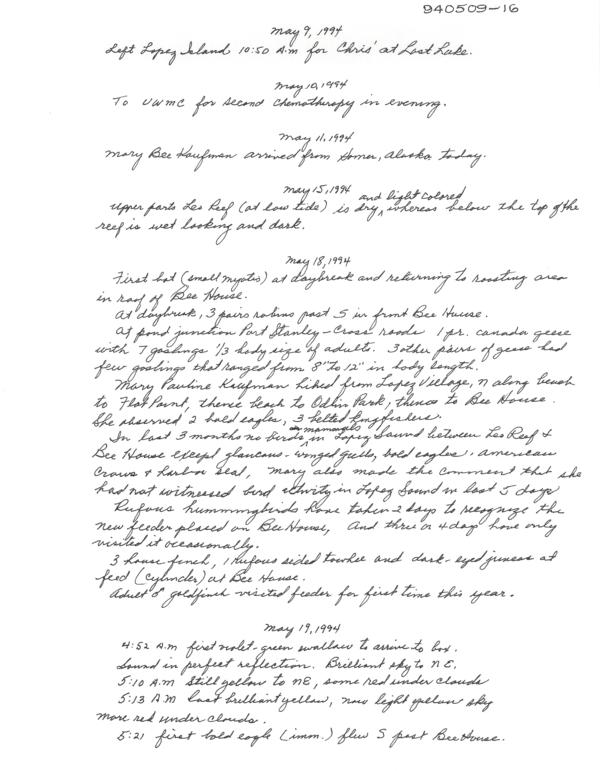 940509-16
May 9, 1994
Left Lopez Island 10:50 A.m for Chris' at Lost Lake.
May 10, 1994
To UWMC for second chemotherapy in evening.
May 11, 1994
Mary Bee Kaufman arrived from Homer, Alaska today.
May 15, 1994
and light colored
Upper parts Leo Reef (at low tide) is dry, whereas below the top of the
reef is wet looking and dark.
May 18, 1994
First bat (small myotis) at daybreak and returning to roosting area
in roof of Bee House.
At daybreak, 3 pairs robins past S in front Bee House.
At pond junction Port Stanley-Cross roads 1 pr. Canada geese
with 7 goslings 1/3 body size of adults. 3 other pairs of geese had
few goslings that ranged from 8" to 12" in body length.
Mary Pauline Kaufman hiked from Lopez Village, N along beach
to Flat Point, thence beach to Odlin Park, thence to Bee House.
She observed 2 bald eagles, 3 belted kingfishers.
or mammals
In last 3 months no birds in Lopez Sound between Leo Reef &
Bee House except glaucous-winged gulls, bald eagles, American
Crows & harbor seal, Mary also made the comment that she
had not witnessed bird activity in Lopez Sound in last 5 days
Rufous hummingbirds have taken 2 days to recognize the
new feeder placed on Bee House, and three or 4 day have only
visited it occasionally.
3 house finch, 1 Rufous sided towhee and dark-eyed juncos at
feed (cylinder) at Bee House.
Adult ♂ goldfinch visited feeder for first time this year.
May 19, 1994
4:52 A.m first violet-green swallow to arrive to box.
Sound in perfect reflection. Brilliant sky to N.E.
5:10 A.M Still yellow to NE, some red under clouds
5:13 A.M Lost brilliant yellow, now light yellow sky
more red under clouds.
5:21 first bald eagle (imm.) flew S past Bee House.